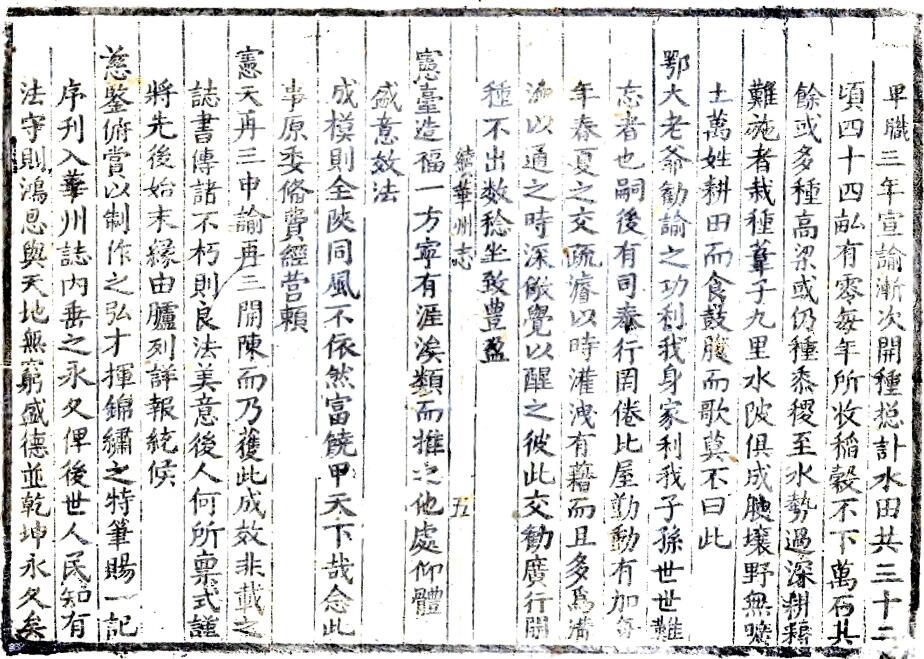 卑職三年宣諭漸次開種捴計水田共三十二
頃四十四畝有零每年所收稻穀不下萬石其
餘或多種高梁或仍種黍稷至水勢過深耕耤
難施者栽種葦子九里水陂俱成腴壤野無曠
土萬姓耕田而食鼓腹而歌莫不曰此
鄂大老爺勸諭之功利我身家利我子孫世世難
忘者也嗣後有司奉行罔倦比屋勤動有加每
年春夏之交疏濬以時灌洩有藉而且多爲溝
洫以通之時深儆覺以醒之彼此交勸廣行開
種不出数稔坐致豊盈
續華州志
五
憲臺造福一方寧有涯涘類而推之他處仰體
盛意效法
成模則全陝同風不依然富饒甲天下哉念此
事原委脩費經營頼
憲天再三申諭再三開陳而乃獲此成效非載之
誌書傳諸不朽則良法美意後人何所禀式謹
將先後始末縁由臚列詳報統候
慈鑒俯賞以制作之弘才揮錦繡之特筆賜一記
序刊入華州誌内垂之永久俾後世人民知有
法守則鴻恩與天地無窮盛德並乾坤永久矣